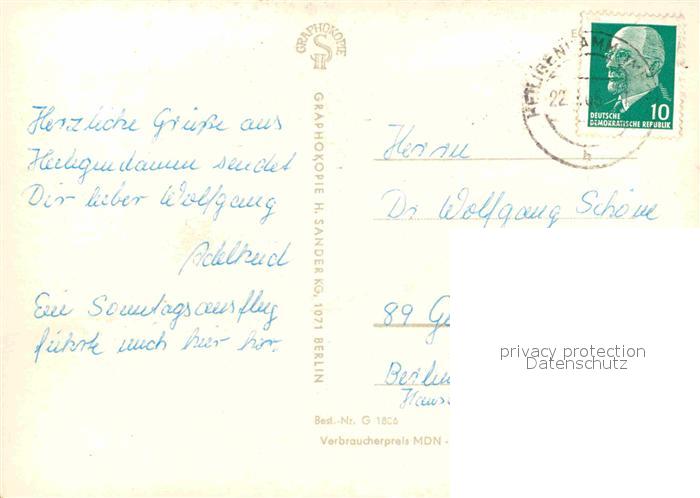 Herzliche Grüße aus
Heiligendamm sendet
Dir lieber Wolfgang
Adelheid
Ein Sonntagsausflug
führte mich hier her.
GRAPHOKOPIE
GRAPHOKOPIE H. SANDER KG, 1071 BERLIN
Best.-Nr. G 1806
Verbraucherpreis MDN -
HEILIGENDAMM
22
b
10
DEUTSCHE
DEMOKRATISCHE REPUBLIK
Herrn
Dr Wolfgang Schöne
89 G
Berlin
privacy protection
Datenschutz